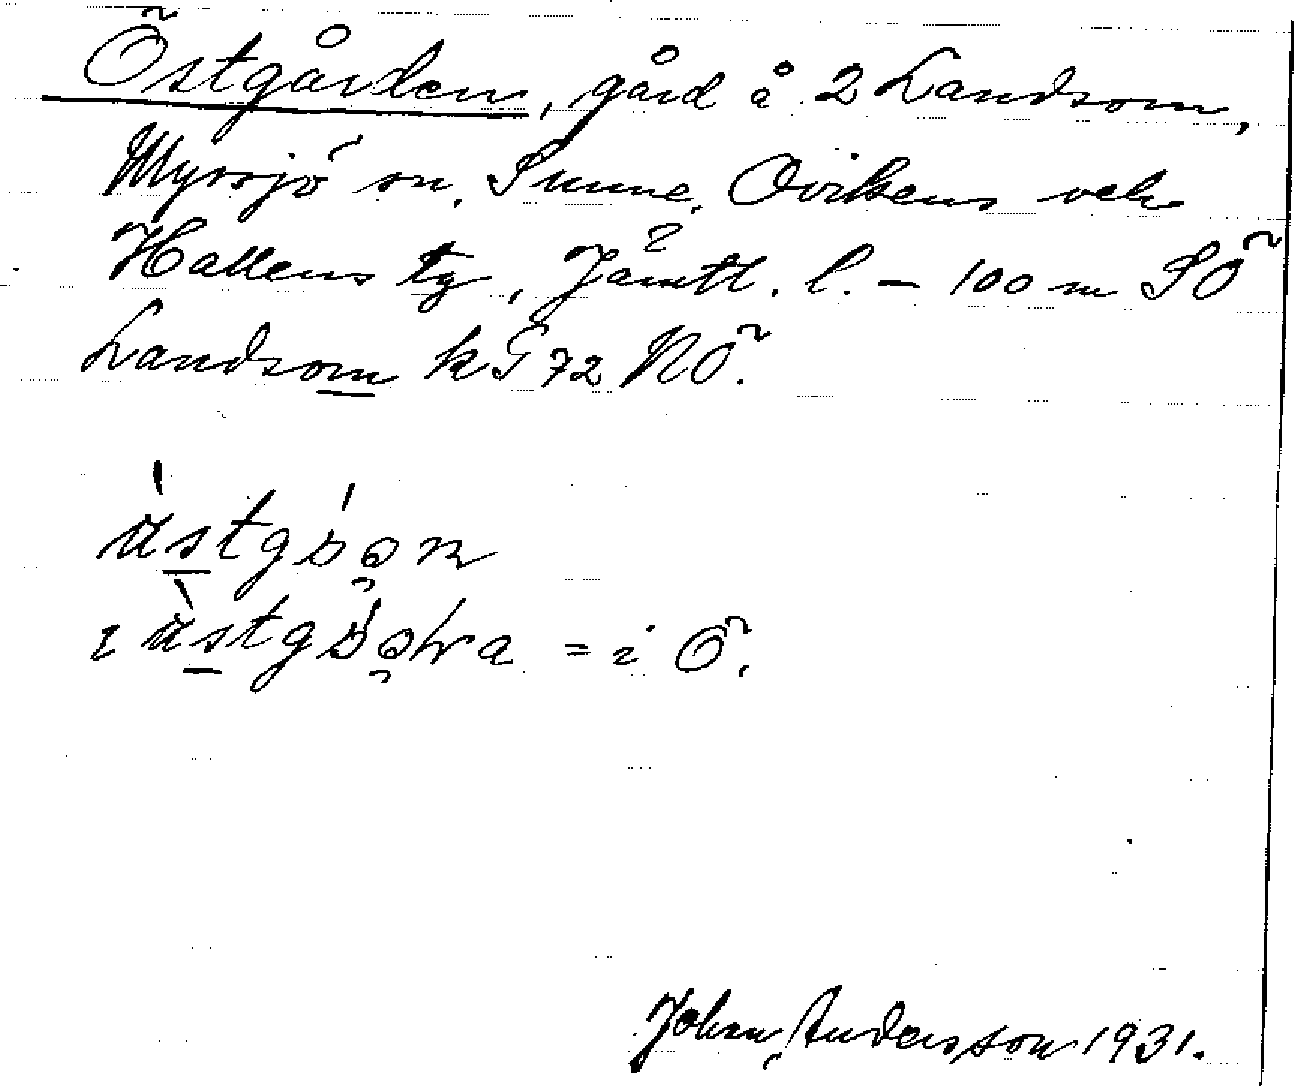 Östgården, gård å 2 Landsom,
Myssjö sn, Sunne, Ovikens och
Hallens tg, Jämtl. l. – 100 m SÖ
Landsom kG 72 NÖ.
= i Ö.
Johan Andersson 1931.